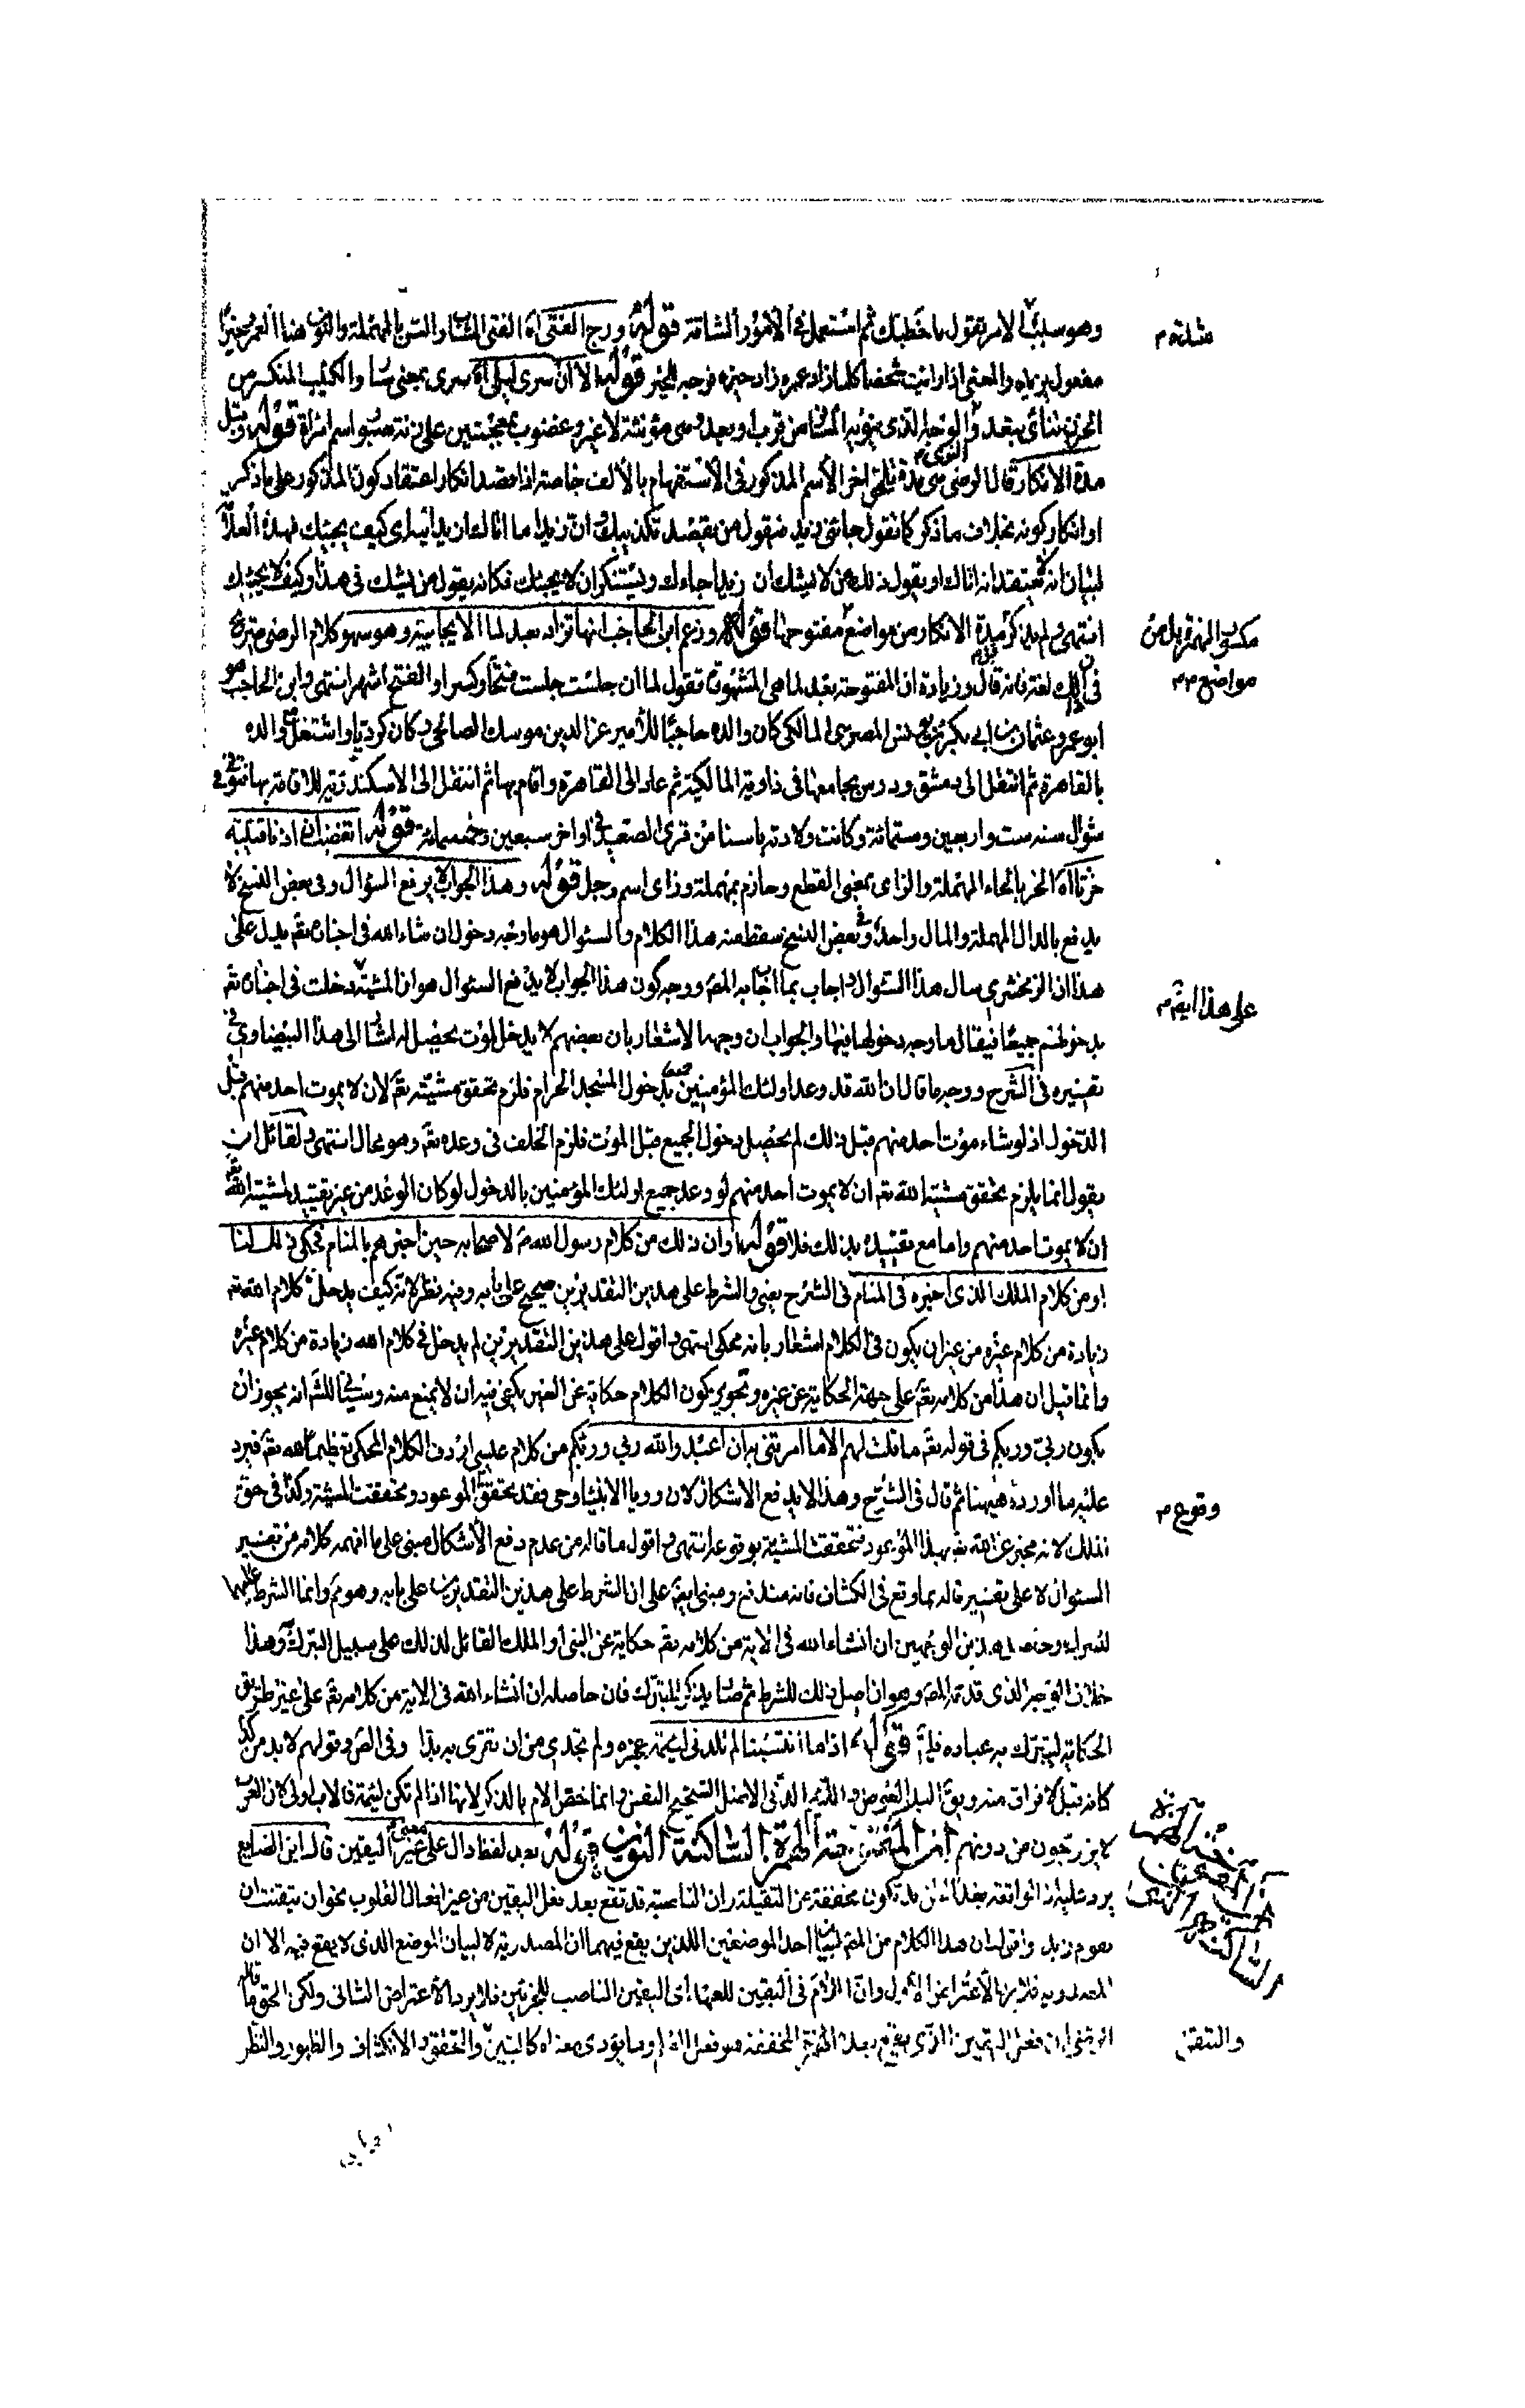 وهو سبب الامر تقول ما خطبك ثم استعمل فى الامور الشاقة قوله ورج الفتى اه الفتى الشاب والسن بالمهملة والنون هنا العمر وخيرا
مفعول يزيد والمعنى اذا رايت شخصا كلما زاد عمره زاد خيره فرجه للخير قوله الا ان سرى ليلى اه سرى بمعنى سار والكئيب المنكسر من
الحزن تنأى تبعد والوجه الذى ينويه المسافر من قرب او بعد وهى مؤنثة لا غير وغضوب بمعجمتين على زنة صبور اسم امرأة قوله وقيل
النوى م
مدة الانكار قال الرضى هى مدة تلحق اخر الاسم المذكور فى الاستفهام بالالف خاصة اذا قصد انكار اعتقاد كون المذكور على ما ذكر
او انكار كونه بخلاف ما ذكر كما تقول جائنى زيد فيقول من يقصد تكذيبك وان زيدا ما اتاك ازيد انيه اى كيف يجيئك لهذه العلة
لبيان انه لا يعتقد انه اتاك او يقول ذلك من لا يشك ان زيدا جاءك ويستنكر ان لا يجيئك فكانه يقول من يشك فى هذا وكيف لا يجيئك
انتهى ولم يذكر مدة الانكار من مواضع مفتوحها قوله وزعم ابن الحاجب انها تزاد بعد لما الايجابية وهو سهو كلام الرضى
مكسور الهمزة بل من
مواضع م م
فى ذلك لغة فانه قال وزيادة ان المفتوحة بعد لما هى المشهورة تقول لما ان جلست جلست فتحا وكسرا والفتح اشهر انتهى وابن الحاجب هو
ابو عمرو عثمان بن ابى بكر بن يونس المصرى المالكى كان والده حاجبا للامير عز الدين موسك الصالحى وكان كرديا واشتغل والده
بالقاهرة ثم انتقل الى دمشق ودرس بجامعها فى زاوية المالكية ثم عاد الى القاهرة واقام بها ثم انتقل الى الاسكندرية للاقامة بها فتوفى فى
شوال سنه ست واربعين وستمائة وكانت ولادته باسنا من قرى الصعيد فى اواخر سبعين وخمسمائة قوله اتغضب ان اذنا قتيبة
حزتا اه الحز بالحاء المهملة والزاى بمعنى القطع وحازم بمهملة وزاى اسم رجل قوله وهذا الجواب لا يرفع السؤال وفى بعض النسخ لا
يدفع بالدال المهملة والمال واحد وفى بعض النسخ سقط منه هذا الكلام والسئوال هو ما وجه دخول ان شاء الله فى اخباره تعم يدل على
هذا ان الزمخشرى سال هذا السئوال واجاب بما اجاب به المصه ووجه كون هذا الجواب لا يدفع السئوال هو ان المشية دخلت فى اخباره تعم
على هذا ايضم م
بدخولهم جميعا فيقال ما وجه دخولها فيها والجواب ان وجهه الاشعار بان بعضهم لا يدخل لموت يحصل له اشار الى هذا البيضاوى فى
تفسيره فى الشرح ووجه ما قال ان الله قد وعد اولئك المؤمنين جميعهم بدخول المسجد الحرام فلزم تحقق مشيته تعم لان لا يموت احد منهم قبل
الدخول اذ لو شاء موت احد منهم قبل ذلك لم يحصل دخول الجميع قبل الموت فلزم الخلف فى وعده تعم وهو محال انتهى ولقائل ان
يقول انما يلزم تحقق مشية الله تعم ان لا يموت احد منهم لو وعد جميع اولئك المؤمنين بالدخول لو كان الوعد من غير تقييد لمشية الله تعم
ان لا يموت احد منهم واما مع تقييده بذلك فلا قوله او ان ذلك من كلام رسول الله ص لاصحابه حين اخبرهم بالمنام فحكى ذلك لنا
او من كلام الملك الذى اخبره فى المنام فى الشرح يعنى والشرط على هذين التقديرين صحيح على بابه وفيه نظر لانه كيف يدخل كلام الله تعم
زيادة من كلام غيره من غير ان يكون فى الكلام اشعار بانه محكى انتهى واقول على هذين التقديرين لم يدخل فى كلام الله زيادة من كلام غيره
وانما قيل ان هذا من كلامه تعم على جهة الحكاية عن غيره وتجويز كون الكلام حكاية عن الغير يكفى فيه ان لا يمنع منه وسيجئ للشه انه يجوز ان
يكون ربى وربكم فى قوله تعم ما قلت لهم الا ما امرتنى به ان اعبدوا الله ربى وربكم من كلام عيسى اردف الكلام المحكى تعظيما لله تعم فيرد
عليه ما اورده هيهنا ثم قال فى الشرح وهذا لا يدفع الاشكال لان رويا الانبياء وحى فقد تحقق الموعود وتحققت المشية وكذا فى حق
وقوع م
الملك لانه مخبر عن الله تعم بهذا الموعود فتحققت المشية بوقوعه انتهى واقول ما قاله من عدم دفع الاشكال مبنى على ما افهمه كلامه من تفسير
السئوال لا على تفسير قاله بما وقع فى الكشاف فانه مندفع ومبنى ايضم على ان الشرط على هذين التقديرين على بابه وهو مم وانما الشرط عليهما
للتبرك وحاصل هذين الوجهين ان انشاء الله فى الاية من كلامه تعم حكاية عن النبى او الملك القائل لذلك على سبيل التبرك وهذا
خلاف التوجيه الذى قدمه المصه وهو ان اصل ذلك للشرط ثم صار يذكر للتبرك فان حاصله ان انشاء الله فى الاية من كلامه تعم على غير طريق
الحكاية ليتبرك به عباده قوله اذا ما انتسبنا لم تلدنى لئيمة عجزه ولم تجدى من ان تقرى به بدا وفى الص وقولهم لا بد من كذا
كانه قيل لا فراق منه ويق البد العوض واللئيم الدنى الاصل الشحيح النفس وانما خص الام بالذكر لانها اذا لم تكن لئيمة فالاب اولى لان العرب
لا يزوجون من دونهم ان المفتوحة الهمزة الساكنة النون قوله بعد لفظ دال على معنى غير اليقين قال ابن الضايع
يقوم زيد واقول ان هذا الكلام من المصه لبيان احد الموضعين اللذين يقع فيهما ان المصدرية لا لبيان الموضع الذى لا يقع فيه الا ان
المصدرية فلا يرد الاعتراض الاول وان اللام فى اليقين للعهد اى اليقين الناصب للجزئين فلا يرد الاعتراض الثانى ولكن الحق ما قاله
والتيقن